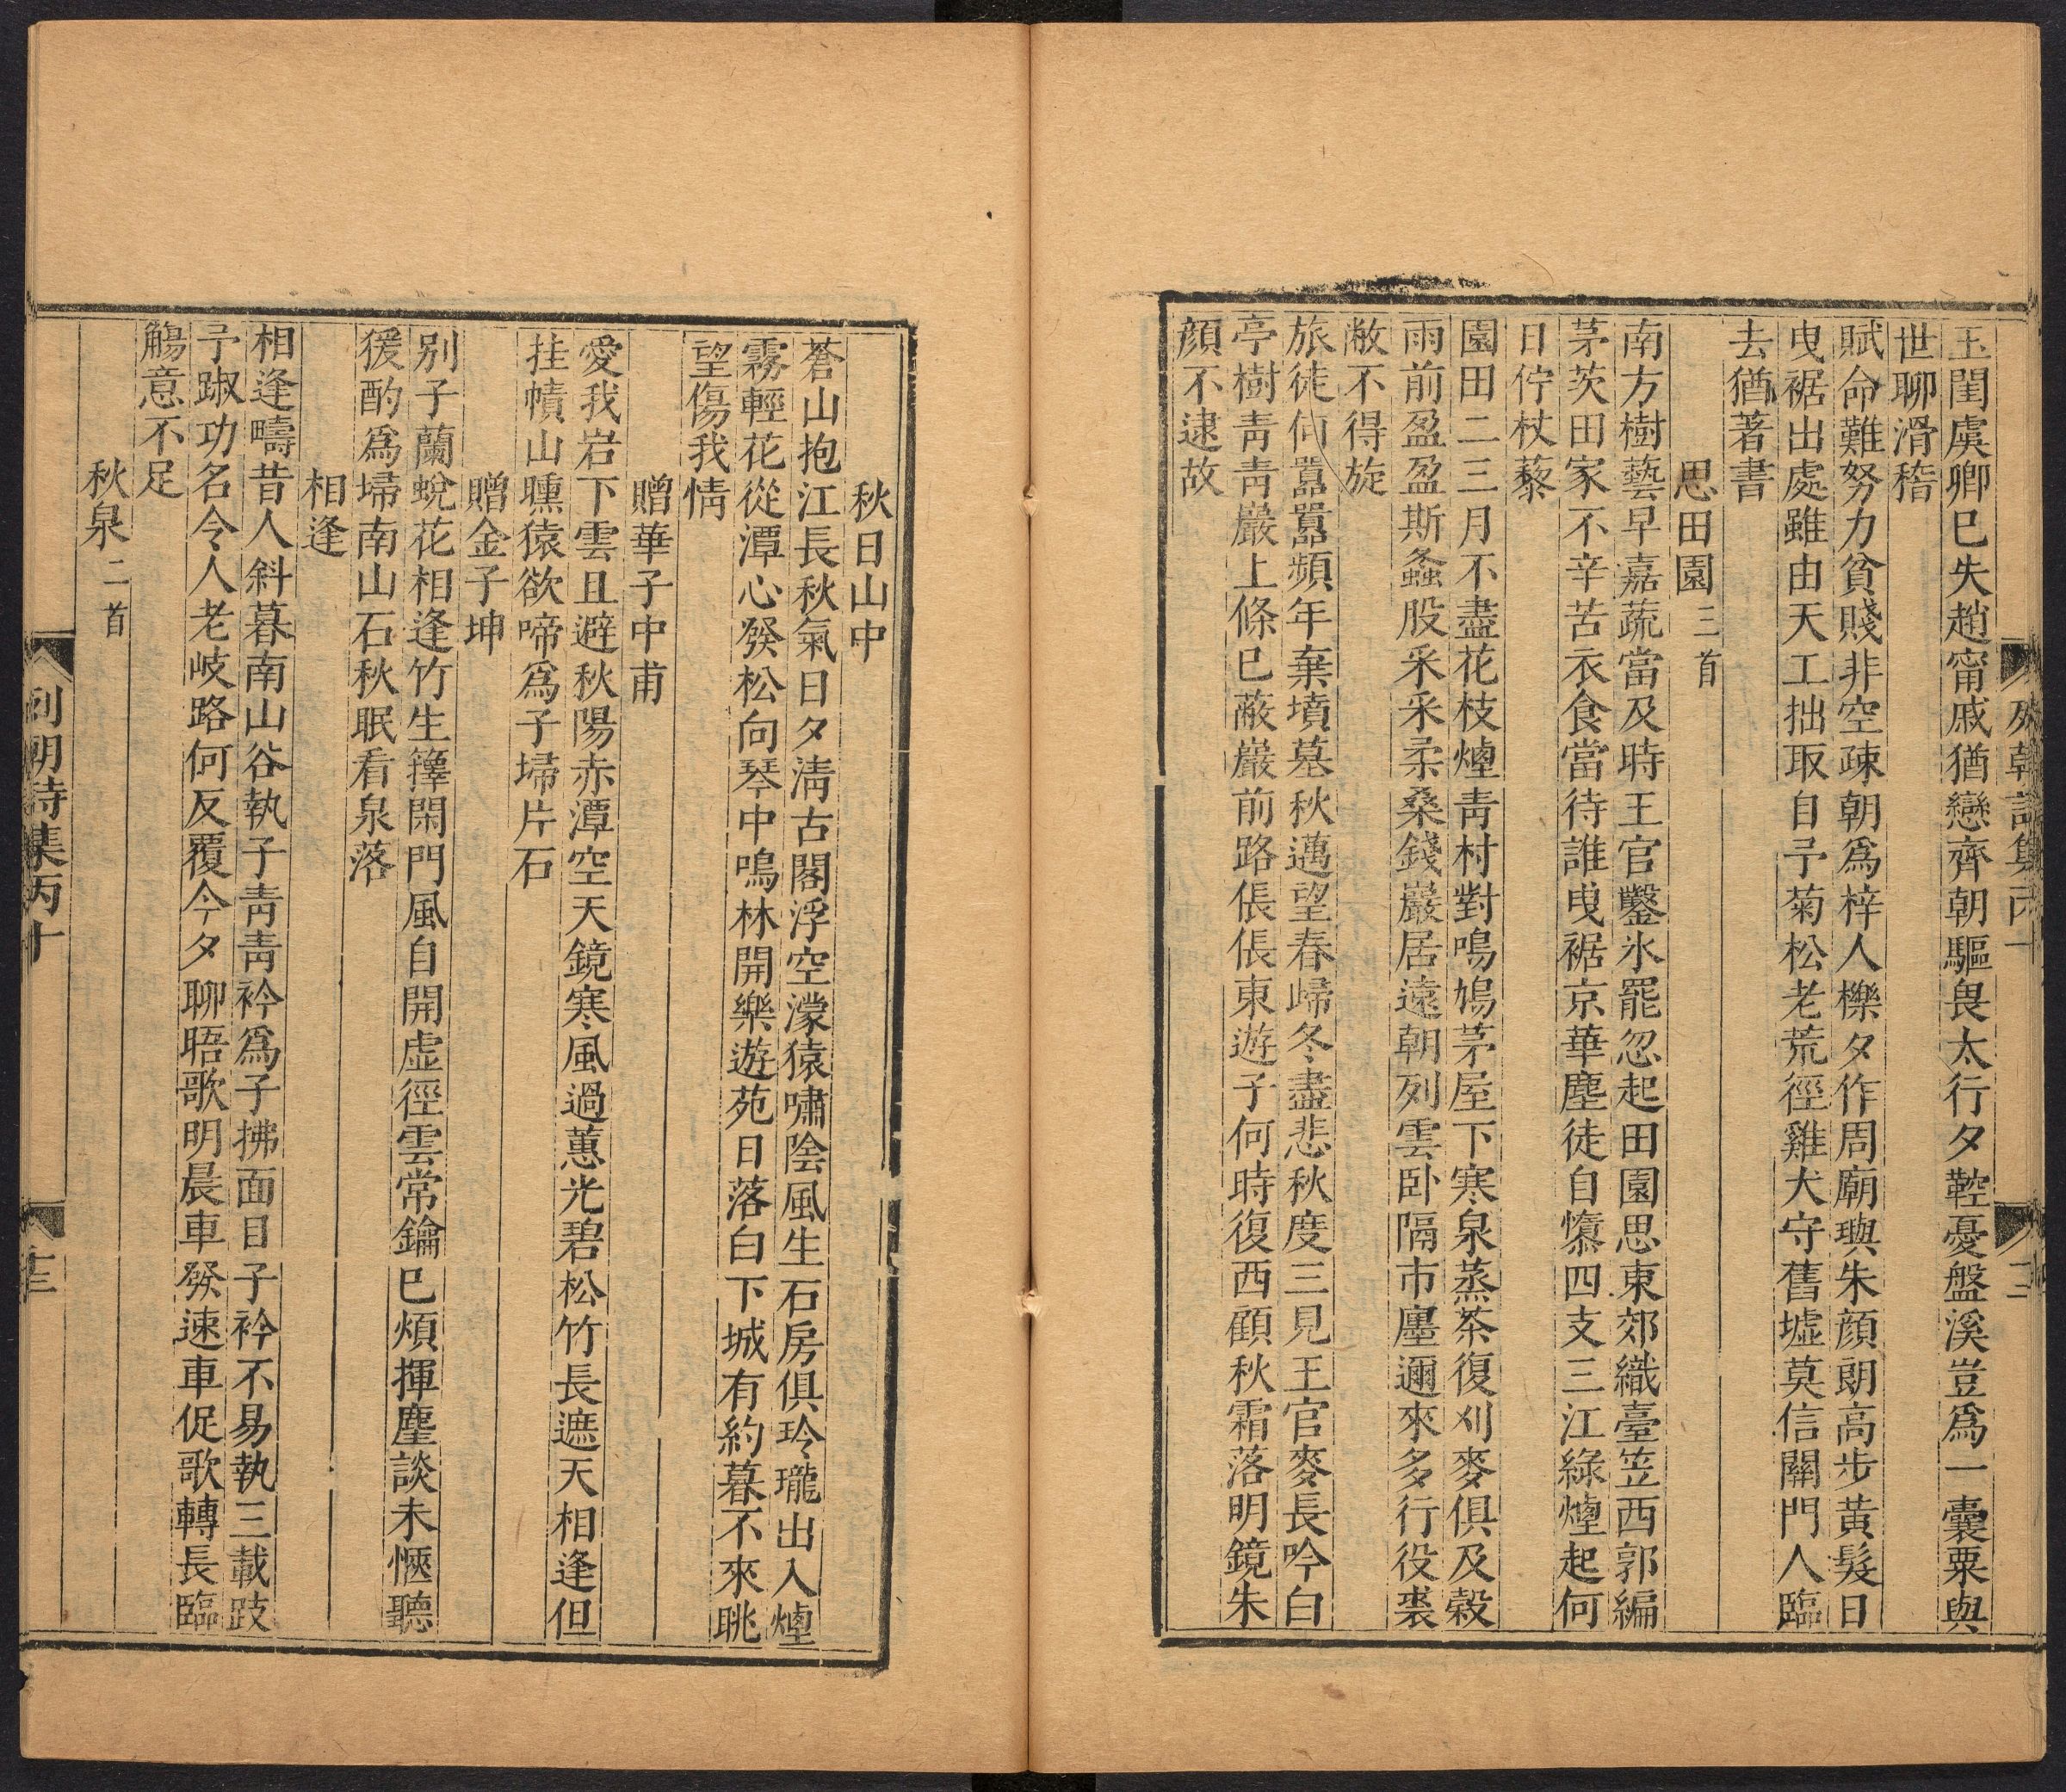 玉閨虞卿已失趙甯戚猶戀齊朝驅畏太行夕鞚憂盤溪豈爲一囊粟與
世聊滑稽
賦命難努力貧賤非空疎朝爲梓人櫟夕作周廟璵朱顔朗高步黃髮日
曳裾出處雖由天工拙取自予菊松老荒徑雞犬守舊墟莫信關門人臨
去猶著書
思田園三首
南方樹藝早嘉蔬當及時王官鑿氷罷忽起田園思東郊織臺笠西郭編
茅茨田家不辛苦衣食當待誰曳裾京華塵徒自慵四支三江綠煙起何
日佇杖藜
園田二三月不盡花枝煙青村對鳴鳩茅屋下寒泉蒸茶復刈麥俱及穀
雨前盈盈斯螽股采采柔桑錢巖居遠朝列雲卧隔市廛邇來多行役裘
敝不得旋
旅徒何囂囂頻年棄墳墓秋邁望春歸冬盡悲秋度三見王官麥長吟白
亭樹青青巖上條已蔽巖前路倀倀東遊子何時復西顧秋霜落明鏡朱
顔不逮故
秋日山中
蒼山抱江長秋氣日夕淸古閣浮空濛猿嘯陰風生石房俱玲瓏出入煙
霧輕花從潭心發松向琴中鳴林開樂遊苑日落白下城有約暮不來眺
望傷我情
贈華子中甫
愛我岩下雲且避秋陽赤潭空天鏡寒風過蕙光碧松竹長遮天相逢但
挂幘山曛猿欲啼爲子埽片石
贈金子坤
别子蘭蛻花相逢竹生籜閑門風自開虛徑雲常鑰已煩揮麈談未愜聽
猨酌爲埽南山石秋眠看泉落
相逢
相逢疇昔人斜暮南山谷執子靑靑衿爲子拂面目子衿不易執三載跂
予踧功名令人老岐路何反覆今夕聊晤歌明晨車發速車促歌轉長臨
觴意不足
秋泉二首
列朝詩集丙十